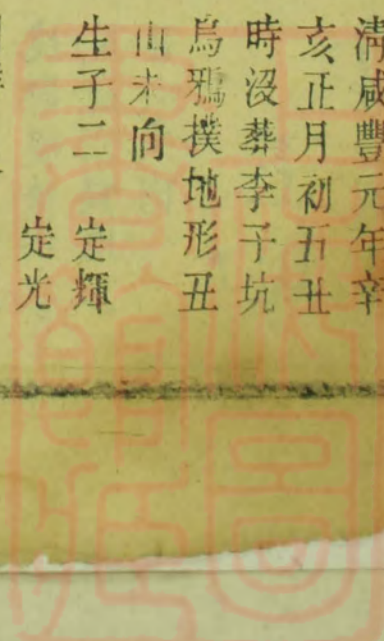 清咸豐元年辛
亥正月初五丑
時没葬李子坑
烏鴉撲地形丑
山未向
生子二 定輝
定光